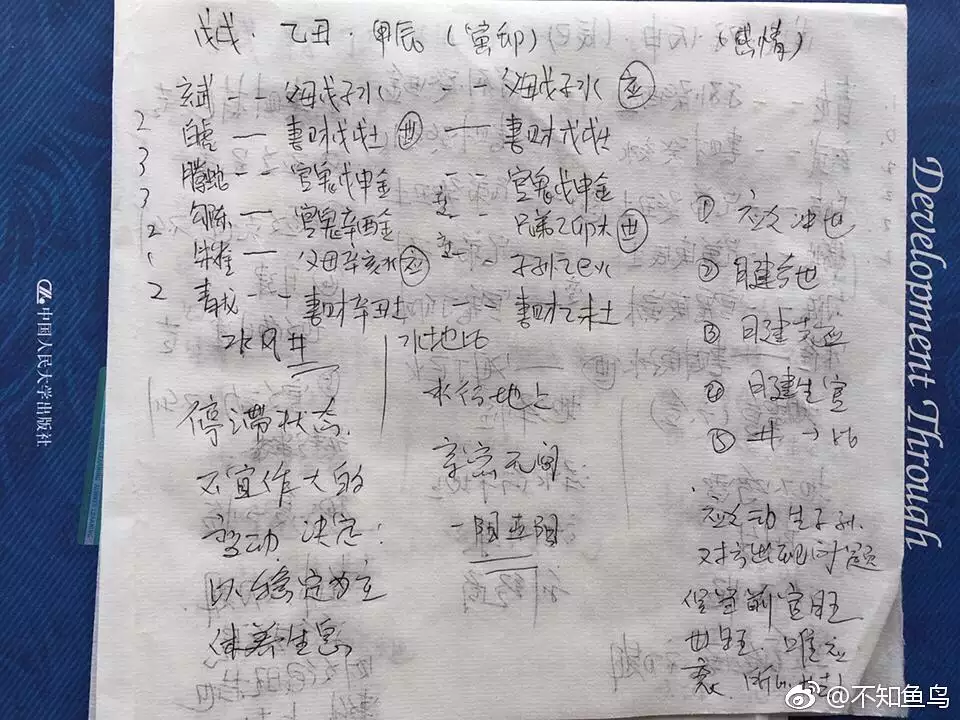 戊戌·乙丑·甲辰(寅卯) (感情)
玄武 -- 父母戊子水 -- 父母戊子水 应
2 白虎 — 妻财戊戌土 世 — 妻财戊戌土
3 腾蛇 -- 官鬼戊申金 -- 官鬼戊申金
3 勾陈 — 官鬼辛酉金 变 -- 兄弟乙卯木 世
2 朱雀 — 父母辛亥水 应 变 -- 子孙乙巳火
2 青龙 -- 妻财辛丑土 -- 妻财乙未土
水风井
水地比
停滞状态.
不宜作大的
变动 决定:
以稳定为主
休养生息
水行地上
亲密无间
① 应爻冲世
② 日建合世
③ 日建克应
④ 日建生官
⑤ 井→比
应爻动生子孙.
对方出现问题
世旺. 唯应
中国人民大学出版社
Development Through
@不知鱼鸟